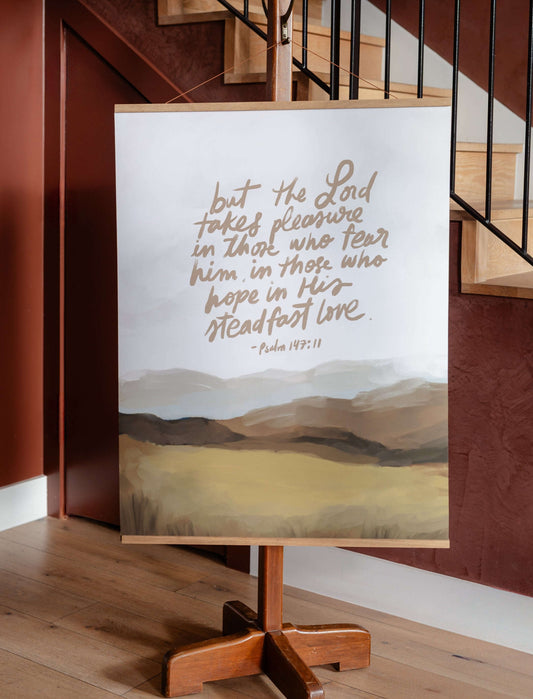 but the Lord
takes pleasure
in those who fear
him, in those who
hope in His
steadfast love.
-Psalm 147:11